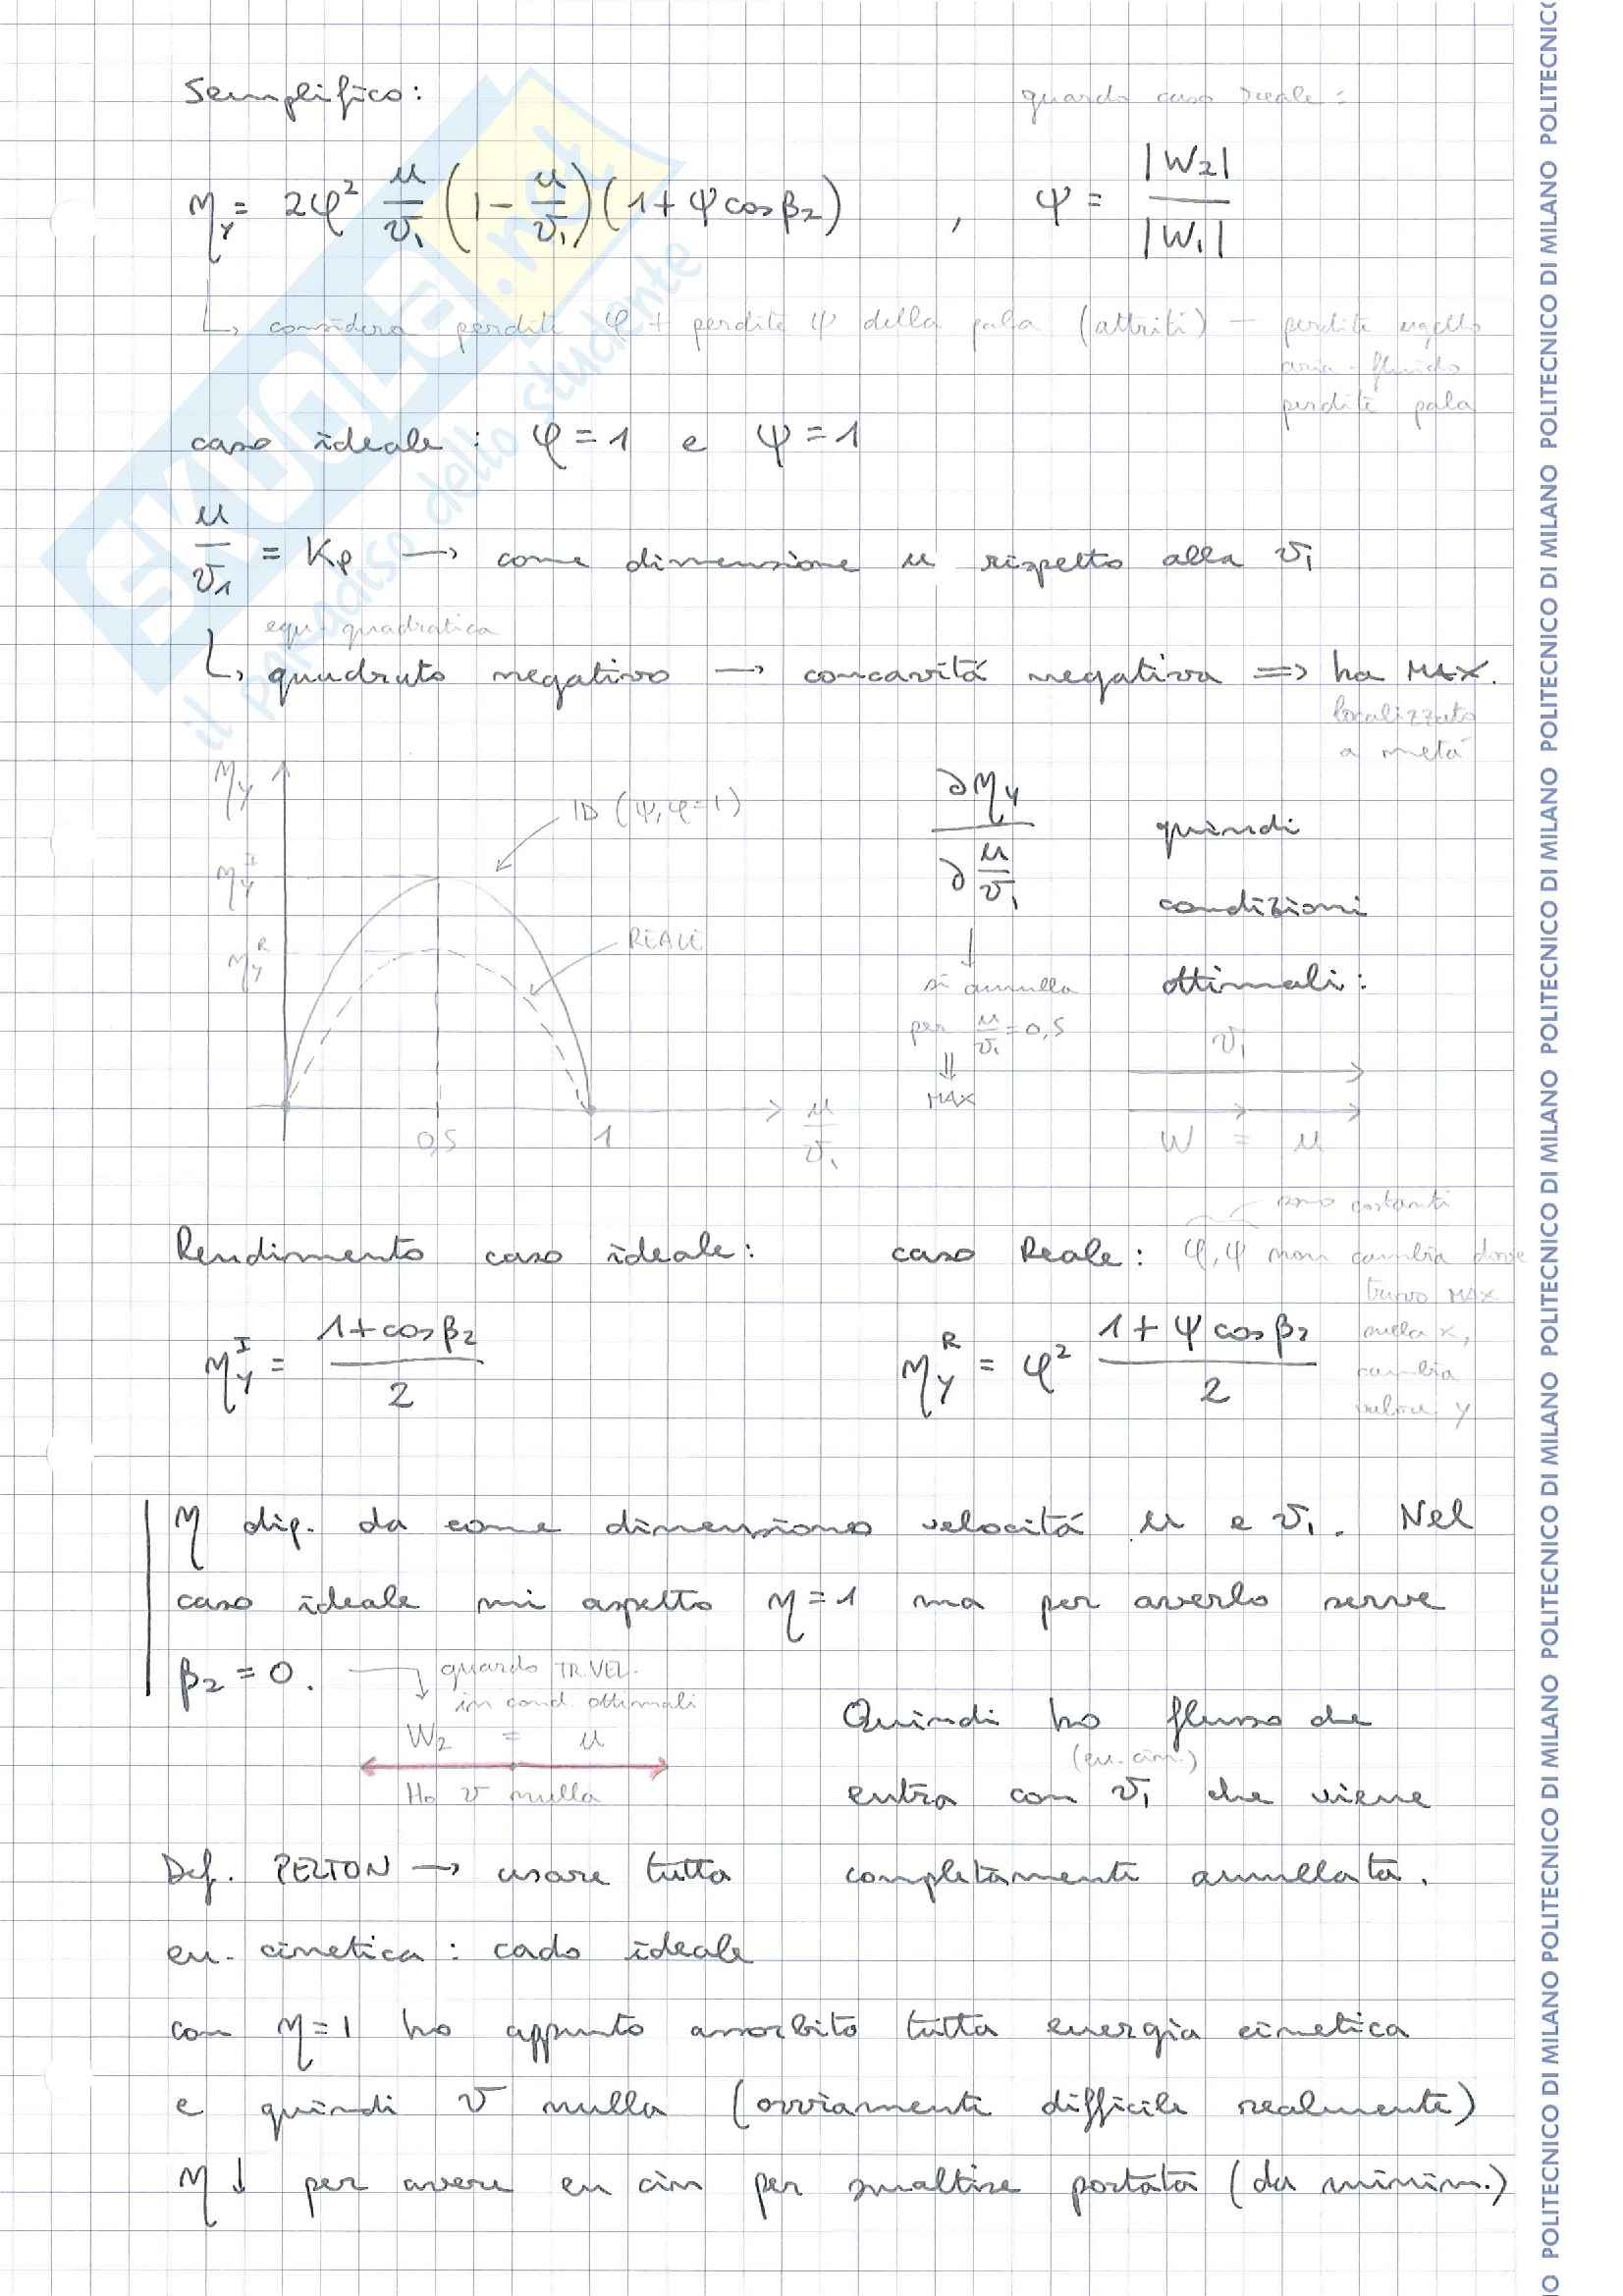 Semplifico:
guardo caso reale:
η_y = 2φ² u/v₁ (1 - u/v₁)(1 + ψ cos β₂) , ψ = |W₂| / |W₁|
↳ considera perdite φ + perdite ψ della pala (attriti) - perdite ugello
aria-fluido
perdite pala
caso ideale : φ = 1 e ψ = 1
u/v₁ = Kp → come dimensione u rispetto alla v₁
equ. quadratica
↳ quadrato negativo → concavitá negativa => ha MAX.
localizzato
a metá
η_y
ID (ψ, φ=1)
η_y^I
η_y^R
REALE
0,5
1
u/v₁
∂η_y / ∂ u/v₁
↓
si annulla
per u/v₁ = 0,5
⇓
MAX
quindi
condizioni
ottimali:
v₁
W = u
Rendimento caso ideale:
η_y^I = (1 + cos β₂) / 2
sono costanti
caso Reale: φ, ψ non cambia dove
trovo MAX
nella x,
cambia
valore y
η_y^R = φ² (1 + ψ cos β₂) / 2
η dip. da come dimensiono velocitá u e v₁. Nel
caso ideale mi aspetto η = 1 ma per averlo serve
β₂ = 0.
guardo TR.VEL.
in cond. ottimali
W₂ = u
Ho v nulla
Quindi ho flusso che
(en. cin.)
entra con v₁ che viene
completamente annullata.
Def. PELTON → usare tutta
en. cinetica : cado ideale
con η = 1 ho appunto assorbito tutta energia cinetica
e quindi v nulla (ovviamente difficile realmente)
η ↓ per avere en cin per smaltire portata (da minim.)
SKUOLA.net
il paradiso dello studente
POLITECNICO DI MILANO POLITECNICO DI MILANO POLITECNICO DI MILANO POLITECNICO DI MILANO POLITECNICO DI MILANO POLITECNICO DI MILANO POLITECNICO DI MILANO POLITECNICO